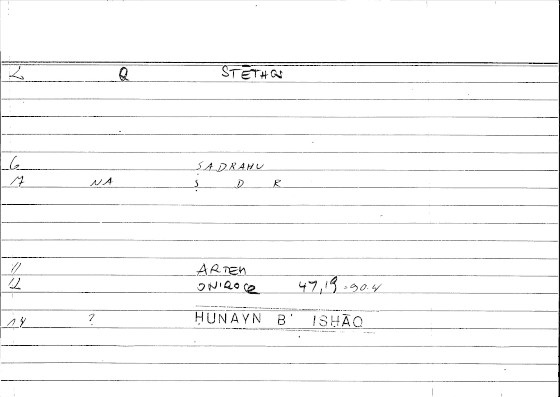 2 Q STĒTHOS
6 ṢADRAHU
7 NA Ṣ D R
11 ARTEM
12 ONIROCR 47,19 - 90.4
14 ? ḤUNAYN B' ISḤĀQ